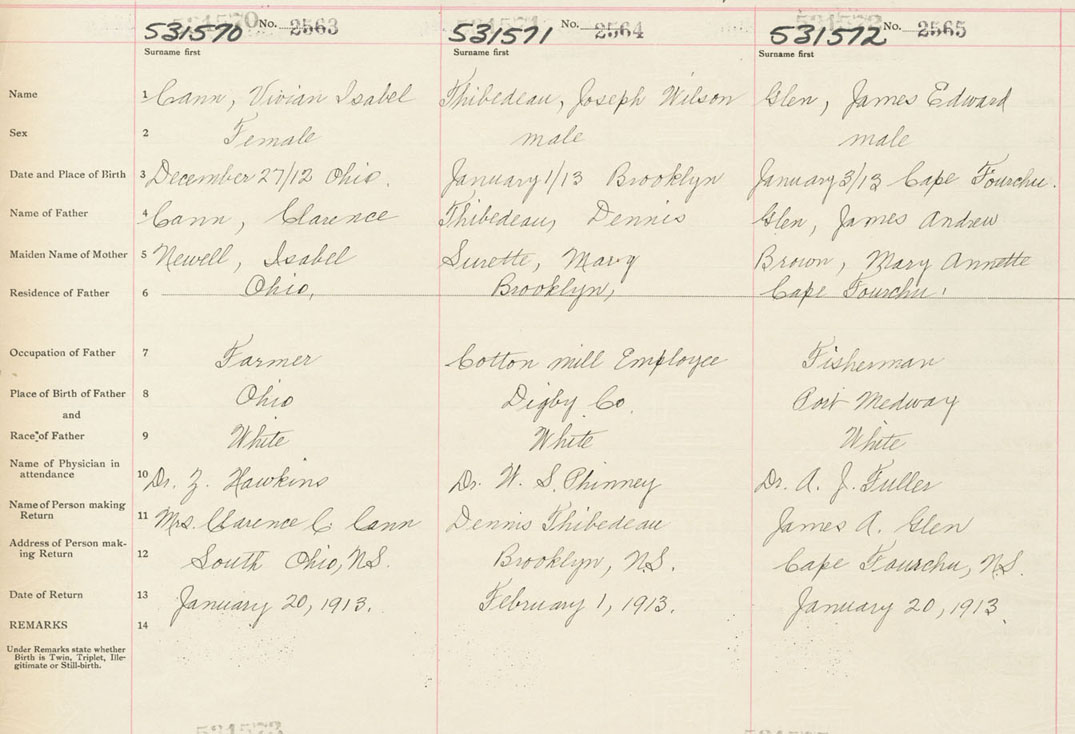 531570 No. 2563 531571 No. 2564 531572 No. 2565
Surname first Surname first Surname first
Name 1 Cann, Vivian Isabel Thibedeau, Joseph Wilson Glen, James Edward
Sex 2 Female male male
Date and Place of Birth 3 December 27/12 Ohio. January 1/13 Brooklyn January 3/13 Cape Fourchu.
Name of Father 4 Cann, Clarence Thibedeau, Dennis Glen, James Andrew
Maiden Name of Mother 5 Newell, Isabel Surette, Mary Brown, Mary Annette
Residence of Father 6 Ohio, Brooklyn, Cape Fourchu,
Occupation of Father 7 Farmer Cotton mill Employee Fisherman
Place of Birth of Father 8 Ohio Digby Co. Port Medway
and
Race of Father 9 White White White
Name of Physician in
attendance 10 Dr. Z. Hawkins Dr. W. S. Phinney Dr. A. J. Fuller
Name of Person making
Return 11 Mrs. Clarence C. Cann Dennis Thibedeau James A. Glen
Address of Person mak-
ing Return 12 South Ohio, N.S. Brooklyn, N.S. Cape Fourchu, N.S.
Date of Return 13 January 20, 1913. February 1, 1913. January 20, 1913.
REMARKS 14
Under Remarks state whether
Birth is Twin, Triplet, Ille-
gitimate or Still-birth.